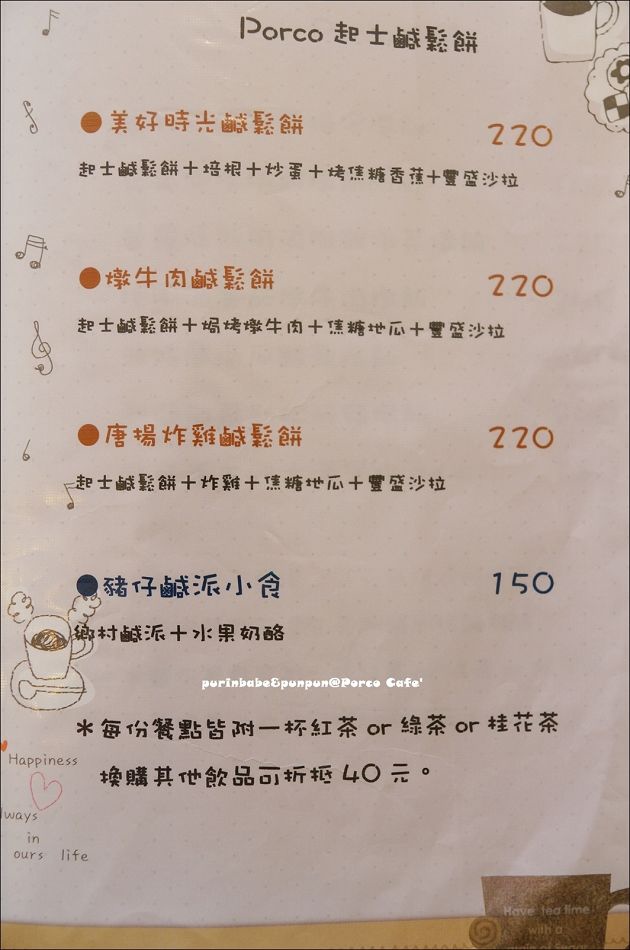 Porco 起士鹹鬆餅
●美好時光鹹鬆餅 220
起士鹹鬆餅＋培根＋炒蛋＋烤焦糖香蕉＋豐盛沙拉
●燉牛肉鹹鬆餅 220
起士鹹鬆餅＋焗烤燉牛肉＋焦糖地瓜＋豐盛沙拉
●唐揚炸雞鹹鬆餅 220
起士鹹鬆餅＋炸雞＋焦糖地瓜＋豐盛沙拉
●豬仔鹹派小食 150
鄉村鹹派＋水果奶酪
purinbabe&punpun@Porco Cafe'
＊每份餐點皆附一杯紅茶 or 綠茶 or 桂花茶
換購其他飲品可折抵 40 元。
Happiness
lways
in
ours life
Have tea time
with a